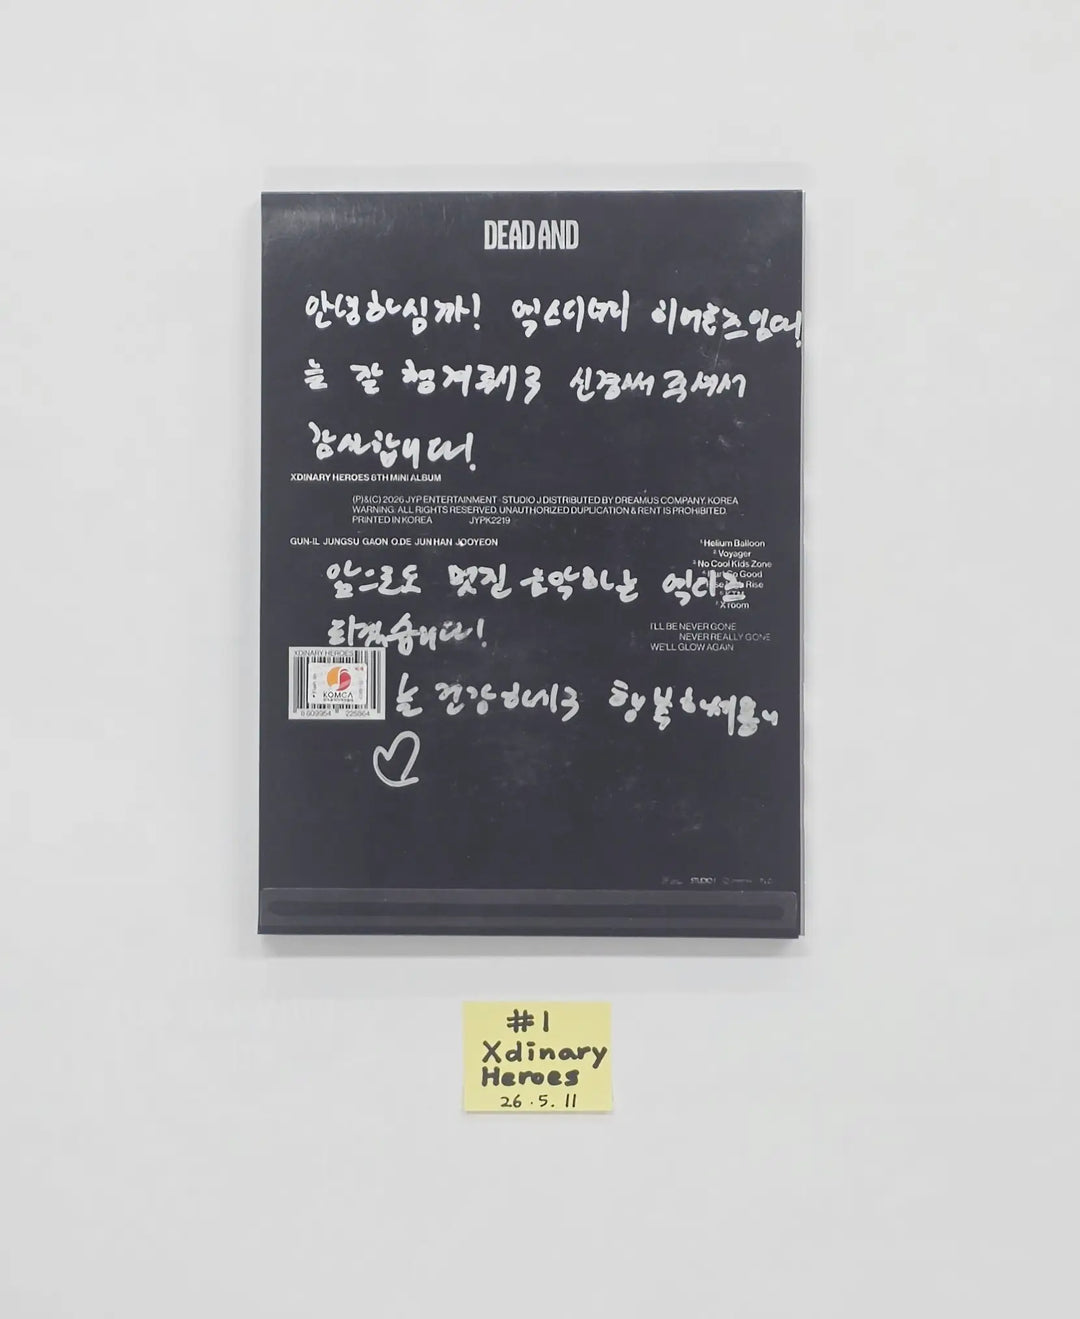 DEAD AND
안녕하심까! 엑스디너리 히어로즈임다!
늘 잘 챙겨주시구 신경써주셔서
감사합니다!
XDINARY HEROES 8TH MINI ALBUM
(P)&(C) 2026 JYP ENTERTAINMENT · STUDIO J DISTRIBUTED BY DREAMUS COMPANY. KOREA
WARNING: ALL RIGHTS RESERVED. UNAUTHORIZED DUPLICATION & RENT IS PROHIBITED.
PRINTED IN KOREA JYPK2219
GUN-IL JUNGSU GAON O.DE JUN HAN JOOYEON
1 Helium Balloon
2 Voyager
3 No Cool Kids Zone
So Good
Rise
7 X room
앞으로도 멋진 음악하는 엑디즈
되겠습니다!
I'LL BE NEVER GONE
NEVER REALLY GONE
WE'LL GLOW AGAIN
XDINARY HEROES
KOMCA
늘 건강하시구 행복하세용
STUDIO J
#1
Xdinary
Heroes
26.5.11